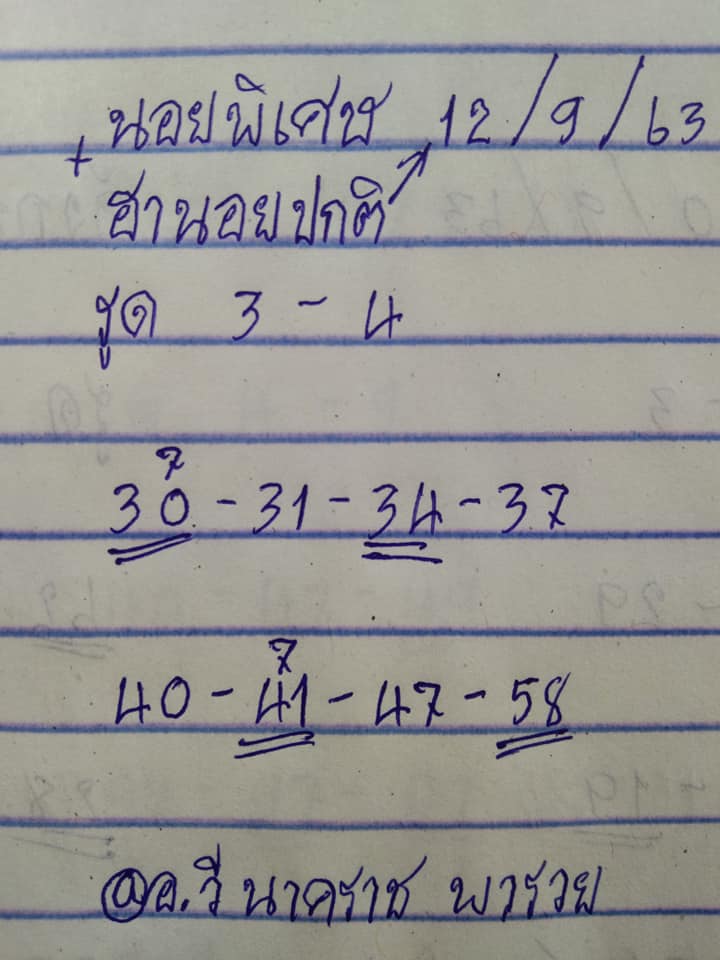 นอยพิเศษ 12/9/63
+
ฮานอยปกติ
รูด 3 - 4
7
30 - 31 - 34 - 37
7
40 - 41 - 47 - 58
@อ.วี นาคราช พารวย